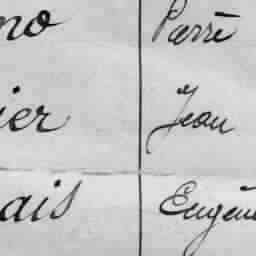 no Pierre
ier Jean
ais Eugène